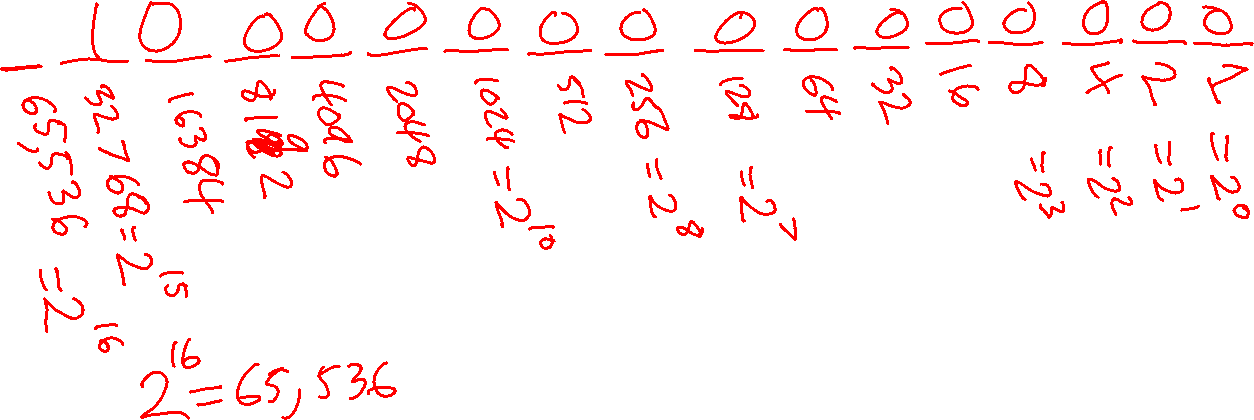 1 0 0 0 0 0 0 0 0 0 0 0 0 0 0 0
65,536 = 2^16
32768 = 2^15
16384
8192
4096
2048
1024 = 2^10
512
256 = 2^8
128 = 2^7
64
32
16
8 = 2^3
4 = 2^2
2 = 2^1
1 = 2^0
2^16 = 65,536